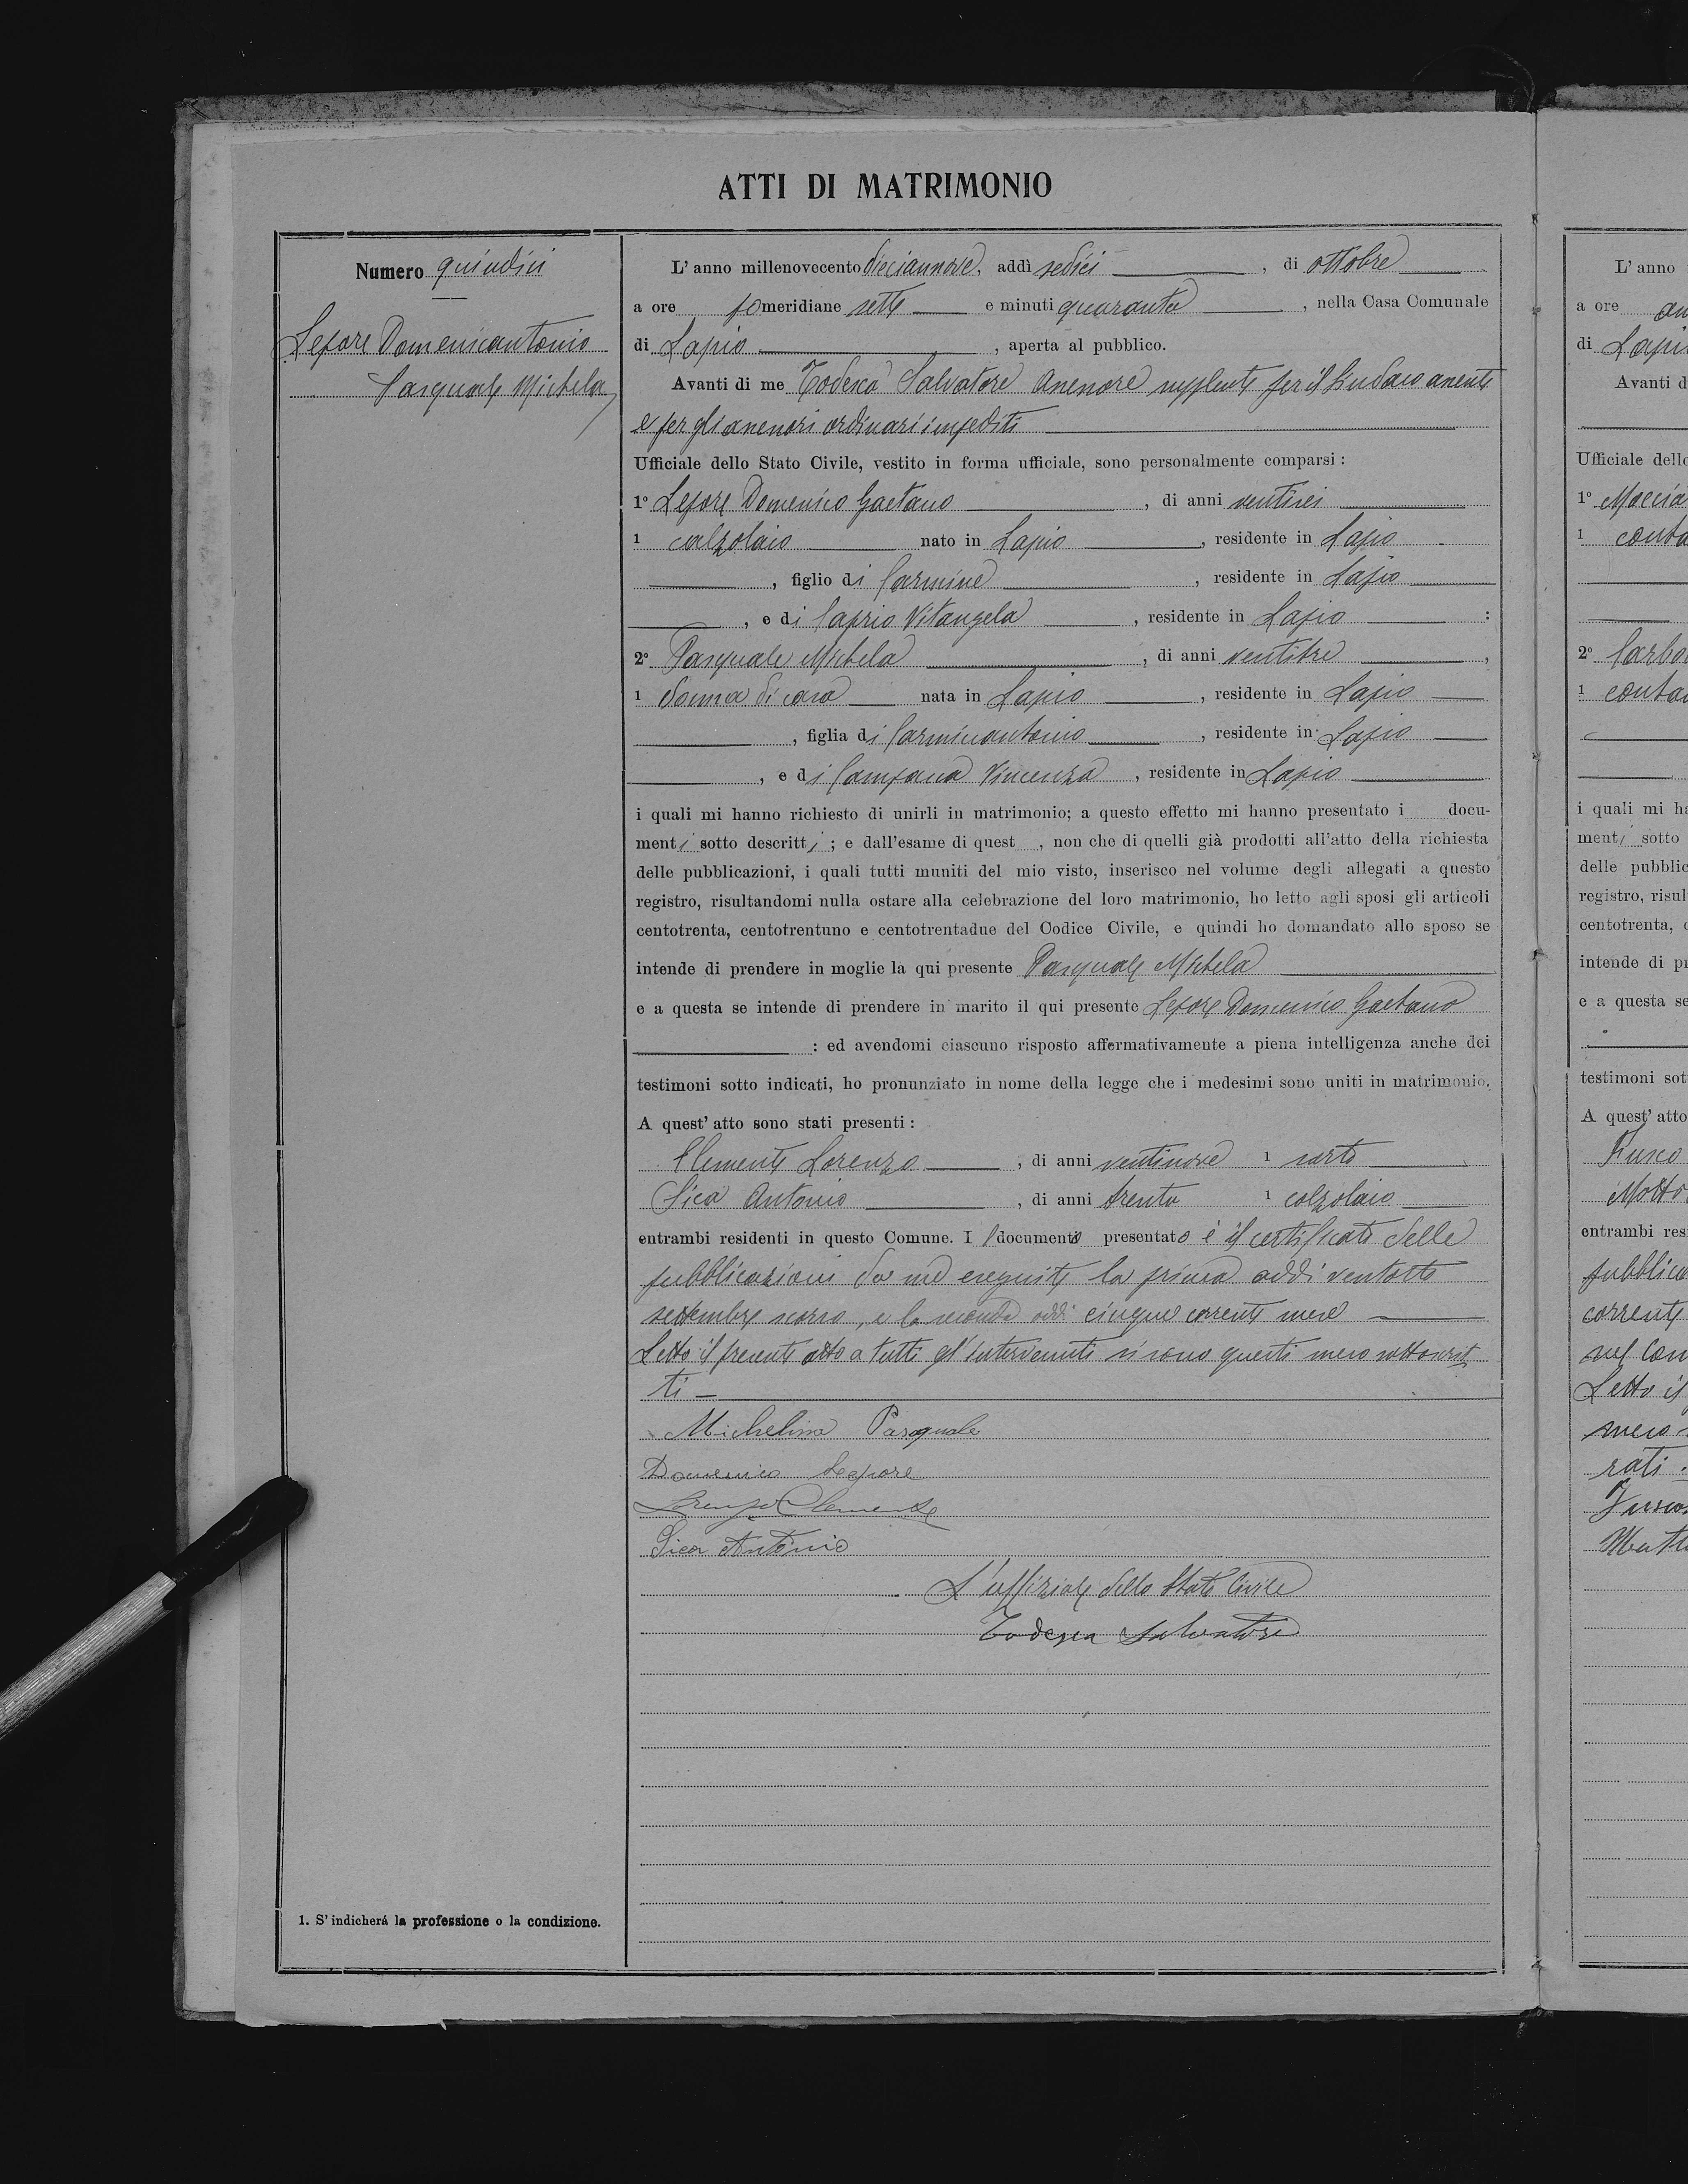 ATTI DI MATRIMONIO
Numero quindici
Lepore Domenicantonio
Pasquale Michela
L'anno millenovecento diciannove, addì sedici, di ottobre
a ore pomeridiane sette e minuti quaranta, nella Casa Comunale
di Lapio, aperta al pubblico.
Avanti di me Todesca Salvatore Assessore supplente per il Sindaco assente
e per gli assessori ordinari impediti
Ufficiale dello Stato Civile, vestito in forma ufficiale, sono personalmente comparsi:
1º Lepore Domenico Gaetano, di anni ventisei
1 calzolaio nato in Lapio, residente in Lapio
, figlio di Carmine, residente in Lapio
, e di Caprio Vitangela, residente in Lapio :
2º Pasquale Michela, di anni ventitre,
1 donna di casa nata in Lapio, residente in Lapio
, figlia di Carminantonio, residente in Lapio
, e di Campana Vincenza, residente in Lapio
i quali mi hanno richiesto di unirli in matrimonio; a questo effetto mi hanno presentato i docu-
menti sotto descritti; e dall'esame di quest , non che di quelli già prodotti all'atto della richiesta
delle pubblicazioni, i quali tutti muniti del mio visto, inserisco nel volume degli allegati a questo
registro, risultandomi nulla ostare alla celebrazione del loro matrimonio, ho letto agli sposi gli articoli
centotrenta, centotrentuno e centotrentadue del Codice Civile, e quindi ho domandato allo sposo se
intende di prendere in moglie la qui presente Pasquale Michela
e a questa se intende di prendere in marito il qui presente Lepore Domenico Gaetano
: ed avendomi ciascuno risposto affermativamente a piena intelligenza anche dei
testimoni sotto indicati, ho pronunziato in nome della legge che i medesimi sono uniti in matrimonio.
A quest' atto sono stati presenti:
Clemente Lorenzo, di anni ventinove 1 sarto
Sica Antonio, di anni trenta 1 calzolaio
entrambi residenti in questo Comune. Il documento presentato è il certificato delle
pubblicazioni da me eseguite la prima addì ventotto
settembre scorso, e la seconda addì cinque corrente mese
Letto il presente atto a tutti gl'intervenuti si sono questi meco sottoscrit
ti
Michelina Pasquale
Domenico Lepore
Lorenzo Clemente
Sica Antonio
L'uffiziale dello Stato Civile
Todesca Salvatore
1. S'indicherá la professione o la condizione.
L'anno
a ore
di Lapio
Avanti d
Ufficiale dello
1º
1 conta
2º
1 conta
i quali mi ha
menti sotto
delle pubblic
registro, risul
centotrenta, c
intende di pr
e a questa se
testimoni sot
A quest' atto
Fusco
entrambi resi
pubblica
corrente
nel Com
Letto il
meco
rati